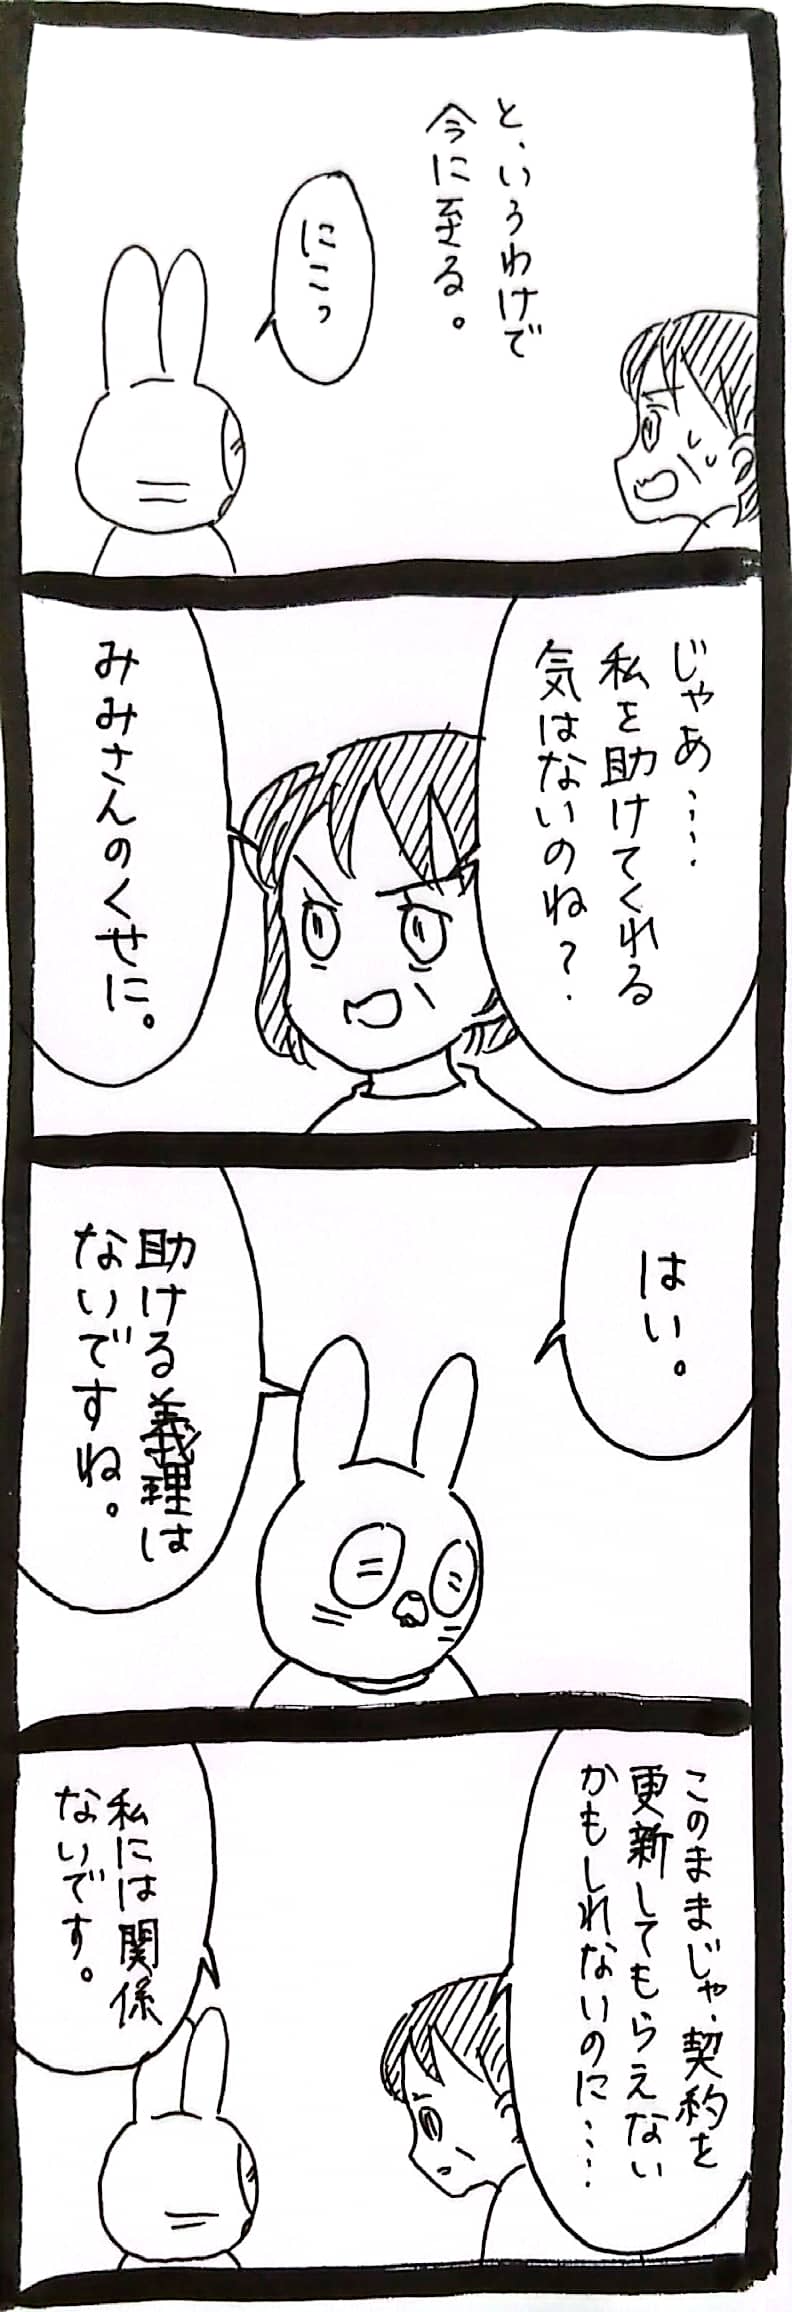 と、いうわけで
今に至る。
にこっ
じゃあ‥‥
私を助けてくれる
気はないのね？
みみさんのくせに。
はい。
助ける義理は
ないですね。
このままじゃ、契約を
更新してもらえない
かもしれないのに‥‥
私には関係
ないです。